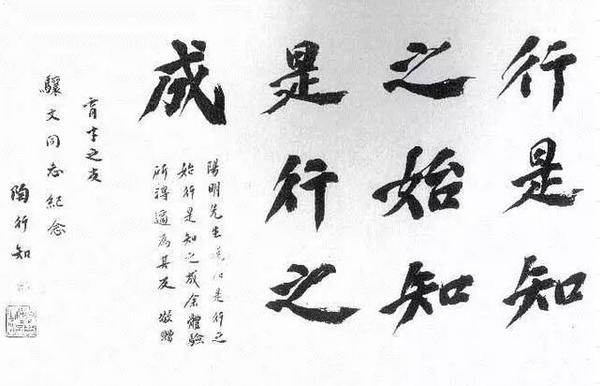 行是知
之始知
是行之
成
陽明先生說知是行之
始行是知之成余體驗
所得適為其反 敬贈
育才之友
驥文同志紀念
陶行知